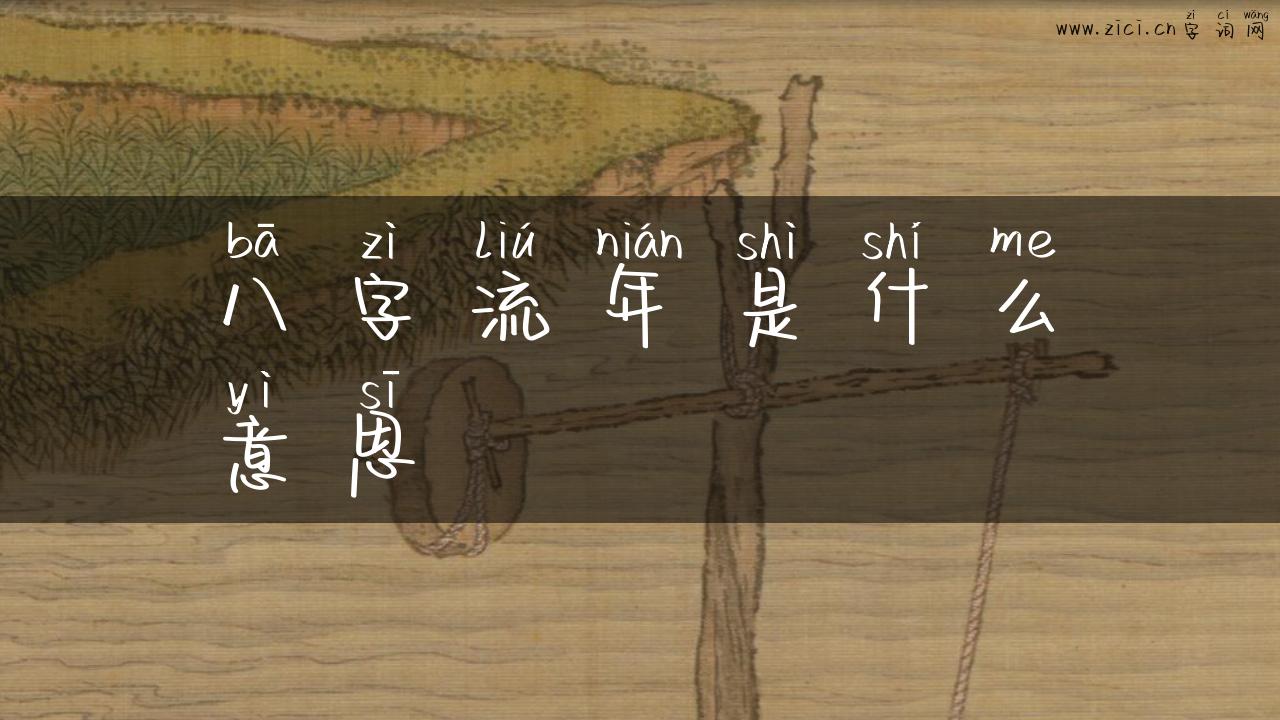 zì cí wǎng
www.zici.cn 字词网
bā zì liú nián shì shí me
八字流年是什么
yì sī
意思